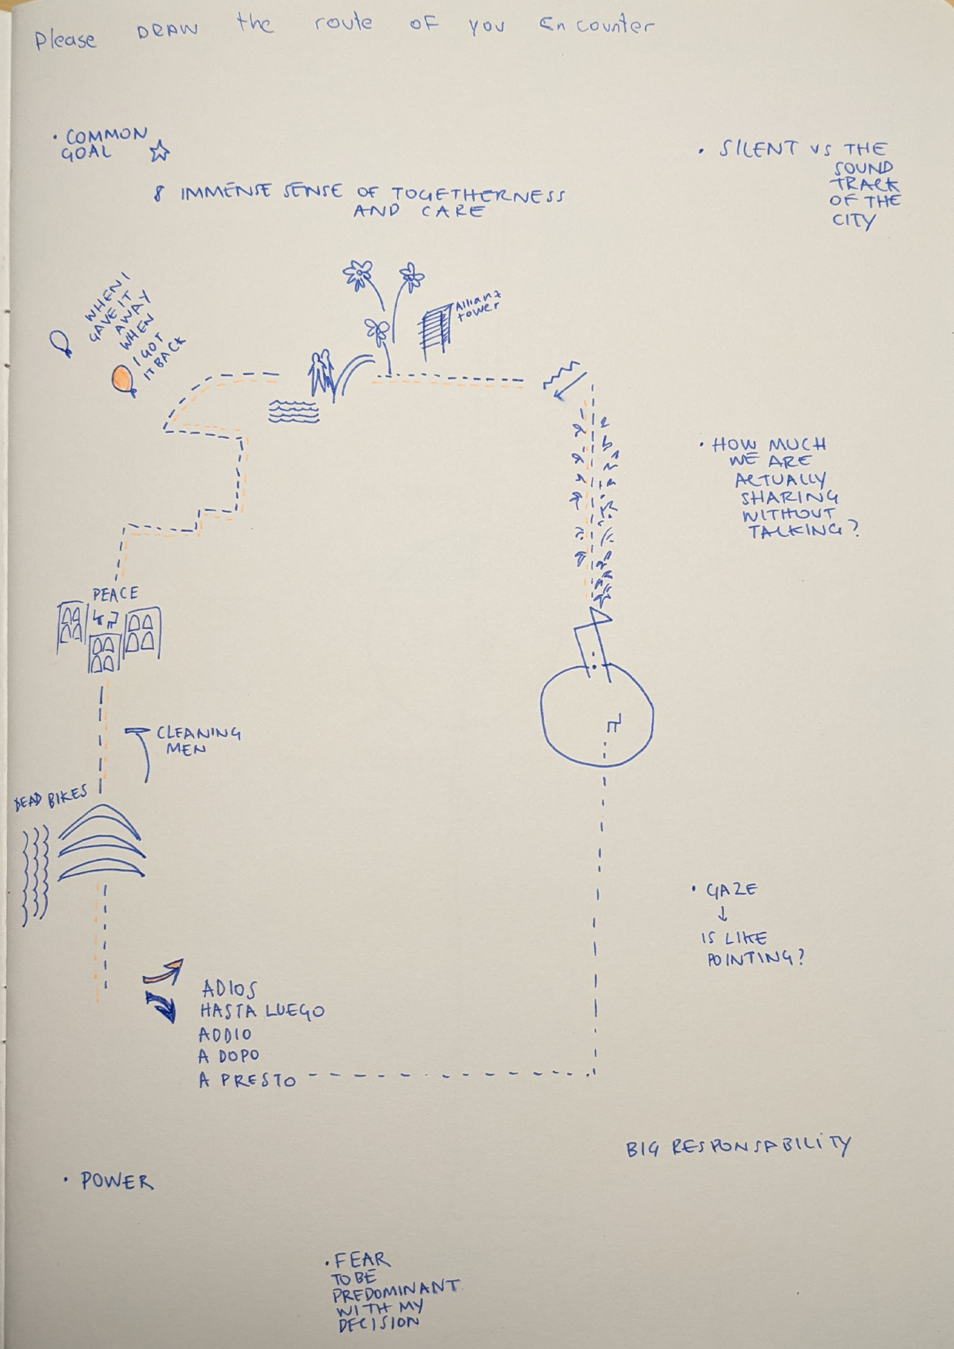 Please DRAW the route OF you Encounter
• COMMON
GOAL ☆
• SILENT VS THE
SOUND
TRACK
OF THE
CITY
8 IMMENSE SENSE OF TOGETHERNESS
AND CARE
WHEN I
GAVE IT
AWAY
WHEN
I GOT
IT BACK
Allianz
tower
• HOW MUCH
WE ARE
ACTUALLY
SHARING
WITHOUT
TALKING?
PEACE
CLEANING
MEN
DEAD BIKES
• GAZE
↓
IS LIKE
POINTING?
ADIOS
HASTA LUEGO
ADDIO
A DOPO
A PRESTO
BIG RESPONSABILITY
• POWER
• FEAR
TO BE
PREDOMINANT
WITH MY
DECISION